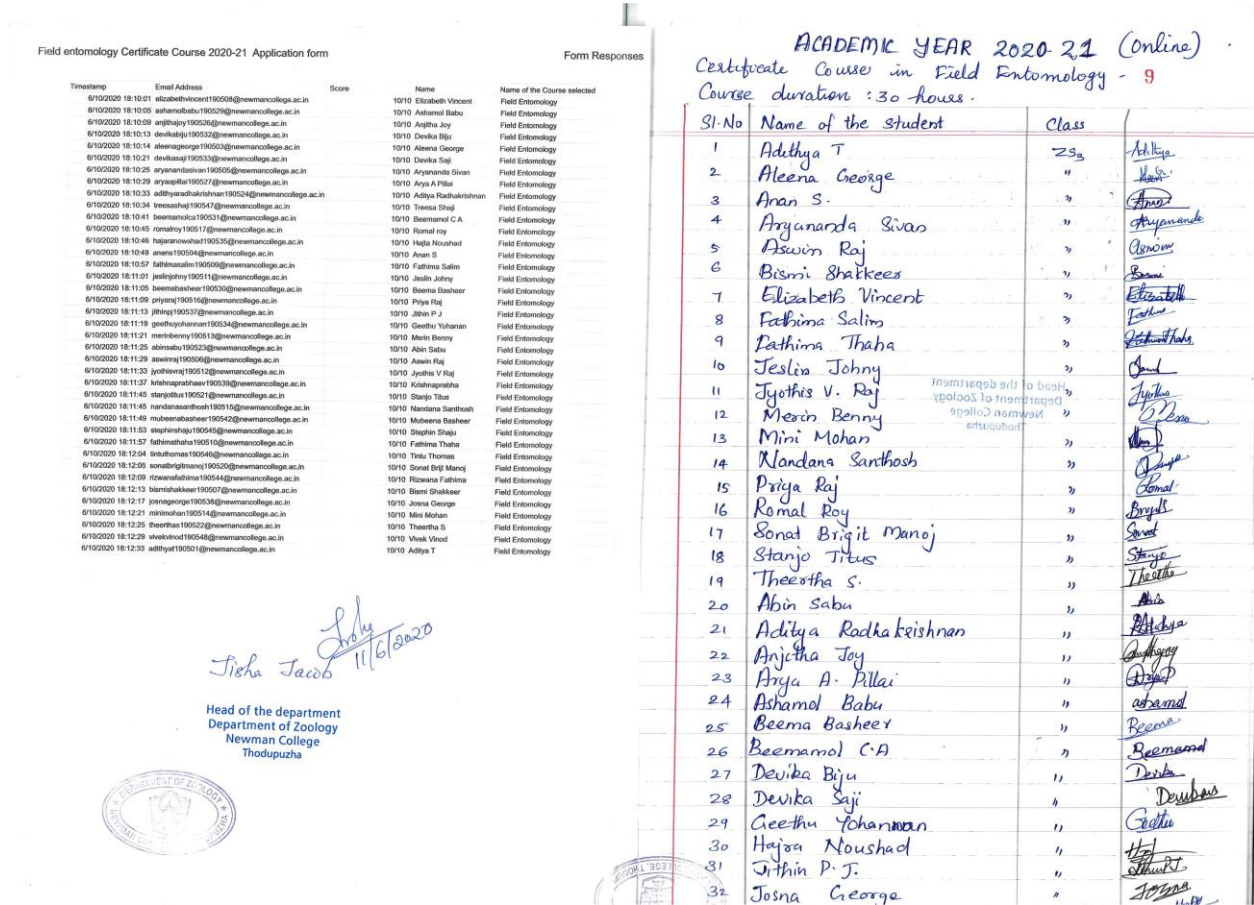 Field entomology Certificate Course 2020-21 Application form
Form Responses
Timestamp Email Address Score Name Name of the Course selected
6/10/2020 18:10:01 elizabethvincent190508@newmancollege.ac.in 10/10 Elizabeth Vincent Field Entomology
6/10/2020 18:10:05 ashamolbabu190529@newmancollege.ac.in 10/10 Ashamol Babu Field Entomology
6/10/2020 18:10:09 anjithajoy190526@newmancollege.ac.in 10/10 Anjitha Joy Field Entomology
6/10/2020 18:10:13 devikabiju190532@newmancollege.ac.in 10/10 Devika Biju Field Entomology
6/10/2020 18:10:14 aleenageorge190503@newmancollege.ac.in 10/10 Aleena George Field Entomology
6/10/2020 18:10:21 devikasaji190533@newmancollege.ac.in 10/10 Devika Saji Field Entomology
6/10/2020 18:10:25 aryanandasivan190505@newmancollege.ac.in 10/10 Aryananda Sivan Field Entomology
6/10/2020 18:10:29 aryaapillai190527@newmancollege.ac.in 10/10 Arya A Pillai Field Entomology
6/10/2020 18:10:33 adithyaradhakrishnan190524@newmancollege.ac.in 10/10 Aditya Radhakrishnan Field Entomology
6/10/2020 18:10:34 treesashaji190547@newmancollege.ac.in 10/10 Treesa Shaji Field Entomology
6/10/2020 18:10:41 beemamolca190531@newmancollege.ac.in 10/10 Beemamol C A Field Entomology
6/10/2020 18:10:45 romalroy190517@newmancollege.ac.in 10/10 Romal roy Field Entomology
6/10/2020 18:10:46 hajaranowshad190535@newmancollege.ac.in 10/10 Hajla Noushad Field Entomology
6/10/2020 18:10:49 anans190504@newmancollege.ac.in 10/10 Anan S Field Entomology
6/10/2020 18:10:57 fathimasalim190509@newmancollege.ac.in 10/10 Fathima Salim Field Entomology
6/10/2020 18:11:01 jeslinjohny190511@newmancollege.ac.in 10/10 Jeslin Johny Field Entomology
6/10/2020 18:11:05 beemabasheer190530@newmancollege.ac.in 10/10 Beema Basheer Field Entomology
6/10/2020 18:11:09 priyaraj190516@newmancollege.ac.in 10/10 Priya Raj Field Entomology
6/10/2020 18:11:13 jithinpj190537@newmancollege.ac.in 10/10 Jithin P J Field Entomology
6/10/2020 18:11:19 geethuyohannan190534@newmancollege.ac.in 10/10 Geethu Yohanan Field Entomology
6/10/2020 18:11:21 merinbenny190513@newmancollege.ac.in 10/10 Merin Benny Field Entomology
6/10/2020 18:11:25 abinsabu190523@newmancollege.ac.in 10/10 Abin Sabu Field Entomology
6/10/2020 18:11:29 aswinraj190506@newmancollege.ac.in 10/10 Aswin Raj Field Entomology
6/10/2020 18:11:33 jyothisvraj190512@newmancollege.ac.in 10/10 Jyothis V Raj Field Entomology
6/10/2020 18:11:37 krishnaprabhaev190539@newmancollege.ac.in 10/10 Krishnaprabha Field Entomology
6/10/2020 18:11:45 stanjotitus190521@newmancollege.ac.in 10/10 Stanjo Titus Field Entomology
6/10/2020 18:11:45 nandanasanthosh190515@newmancollege.ac.in 10/10 Nandana Santhosh Field Entomology
6/10/2020 18:11:49 mubeenabasheer190542@newmancollege.ac.in 10/10 Mubeena Basheer Field Entomology
6/10/2020 18:11:53 stephinshaju190545@newmancollege.ac.in 10/10 Stephin Shaju Field Entomology
6/10/2020 18:11:57 fathimathaha190510@newmancollege.ac.in 10/10 Fathima Thaha Field Entomology
6/10/2020 18:12:04 tintuthomas190546@newmancollege.ac.in 10/10 Tintu Thomas Field Entomology
6/10/2020 18:12:05 sonatbrigitmanoj190520@newmancollege.ac.in 10/10 Sonat Brijit Manoj Field Entomology
6/10/2020 18:12:09 rizwanafathima190544@newmancollege.ac.in 10/10 Rizwana Fathima Field Entomology
6/10/2020 18:12:13 bismishakkeer190507@newmancollege.ac.in 10/10 Bismi Shakkeer Field Entomology
6/10/2020 18:12:17 josnageorge190538@newmancollege.ac.in 10/10 Josna George Field Entomology
6/10/2020 18:12:21 minimohan190514@newmancollege.ac.in 10/10 Mini Mohan Field Entomology
6/10/2020 18:12:25 theerthas190522@newmancollege.ac.in 10/10 Theertha S Field Entomology
6/10/2020 18:12:29 vivekvinod190548@newmancollege.ac.in 10/10 Vivek Vinod Field Entomology
6/10/2020 18:12:33 adithyat190501@newmancollege.ac.in 10/10 Aditya T Field Entomology
Jisha Jacob 11/6/2020
Head of the department
Department of Zoology
Newman College
Thodupuzha
DEPARTMENT OF ZOOLOGY
ACADEMIC YEAR 2020-21 (Online)
Certificate Course in Field Entomology - 9
Course duration : 30 hours.
Sl.No Name of the student Class
1 Adithya T ZSg Adithya
2 Aleena George "
3 Anan S. " Anan
4 Aryananda Sivan " Aryananda
5 Aswin Raj " aswin
6 Bismi Shakkeer "
7 Elizabeth Vincent " Elizabeth
8 Fathima Salim " Fathima
9 Fathima Thaha " Fathima Thaha
10 Jeslin Johny "
11 Jyothis V. Raj " Jyothis
12 Merin Benny "
13 Mini Mohan "
14 Nandana Santhosh "
15 Priya Raj "
16 Romal Roy "
17 Sonat Brigit Manoj " Sonat
18 Stanjo Titus " Stanjo
19 Theertha S. " Theertha
20 Abin Sabu " Abin
21 Aditya Radhakrishnan "
22 Anjitha Joy "
23 Arya A. Pillai "
24 Ashamol Babu " ashamol
25 Beema Basheer " Beema
26 Beemamol C.A " Beemamol
27 Devika Biju " Devika
28 Devika Saji "
29 Geethu Yohannan " Geethu
30 Hajra Noushad "
31 Jithin P. J. "
32 Josna George " Josna
Head of the department
Department of Zoology
Newman College
Thodupuzha